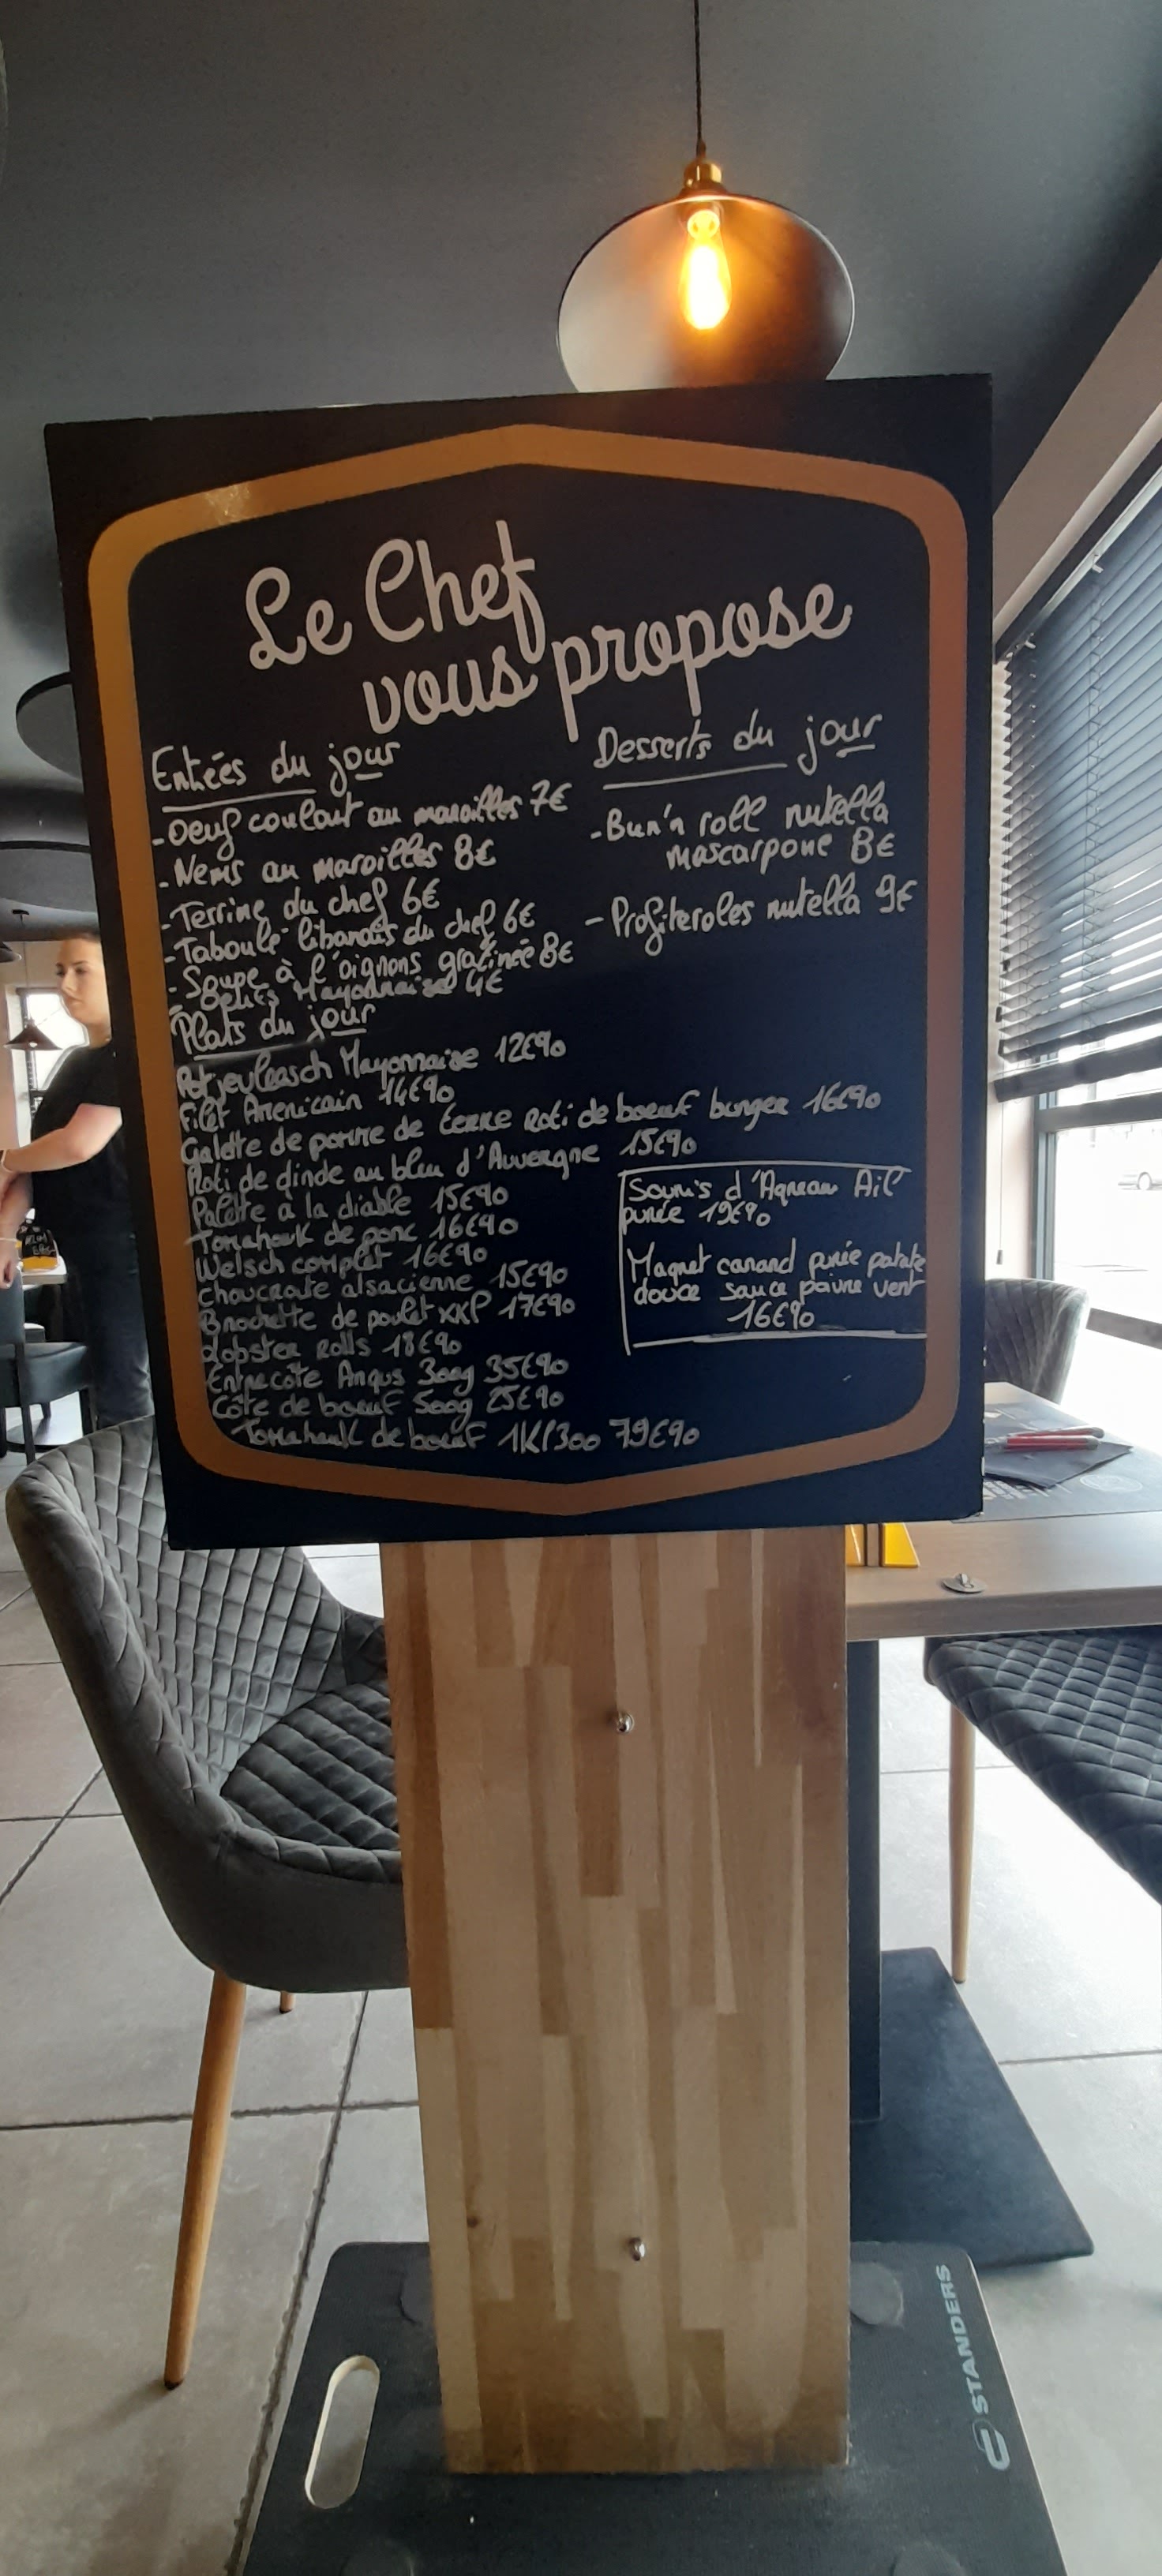 Le Chef
vous propose
Entrées du jour
- Oeuf coulant au maroilles 7€
- Nems au maroilles 8€
- Terrine du chef 6€
- Taboulé libanais du chef 6€
- Soupe à l'oignons gratinée 8€
- Oeufs Mayonnaise 4€
Desserts du jour
- Bun'n roll nutella
mascarpone 8€
- Profiteroles nutella 9€
Plats du jour
Potjevleasch Mayonnaise 12€90
Filet Americain 14€90
Galette de pomme de terre Roti de boeuf burger 16€90
Roti de dinde au bleu d'Auvergne 15€90
Palette à la diable 15€90
Tomahawk de porc 16€90
Welsch complet 16€90
choucroute alsacienne 15€90
Brochette de poulet XXL 17€90
Lobster Rolls 18€90
Entrecôte Angus 300g 35€90
Côte de boeuf 500g 25€90
Tomahawk de boeuf 1K/300 79€90
Souris d'Agneau Ail
purée 19€90
Magret canard purée patate
douce sauce poivre vert
16€90
STANDERS